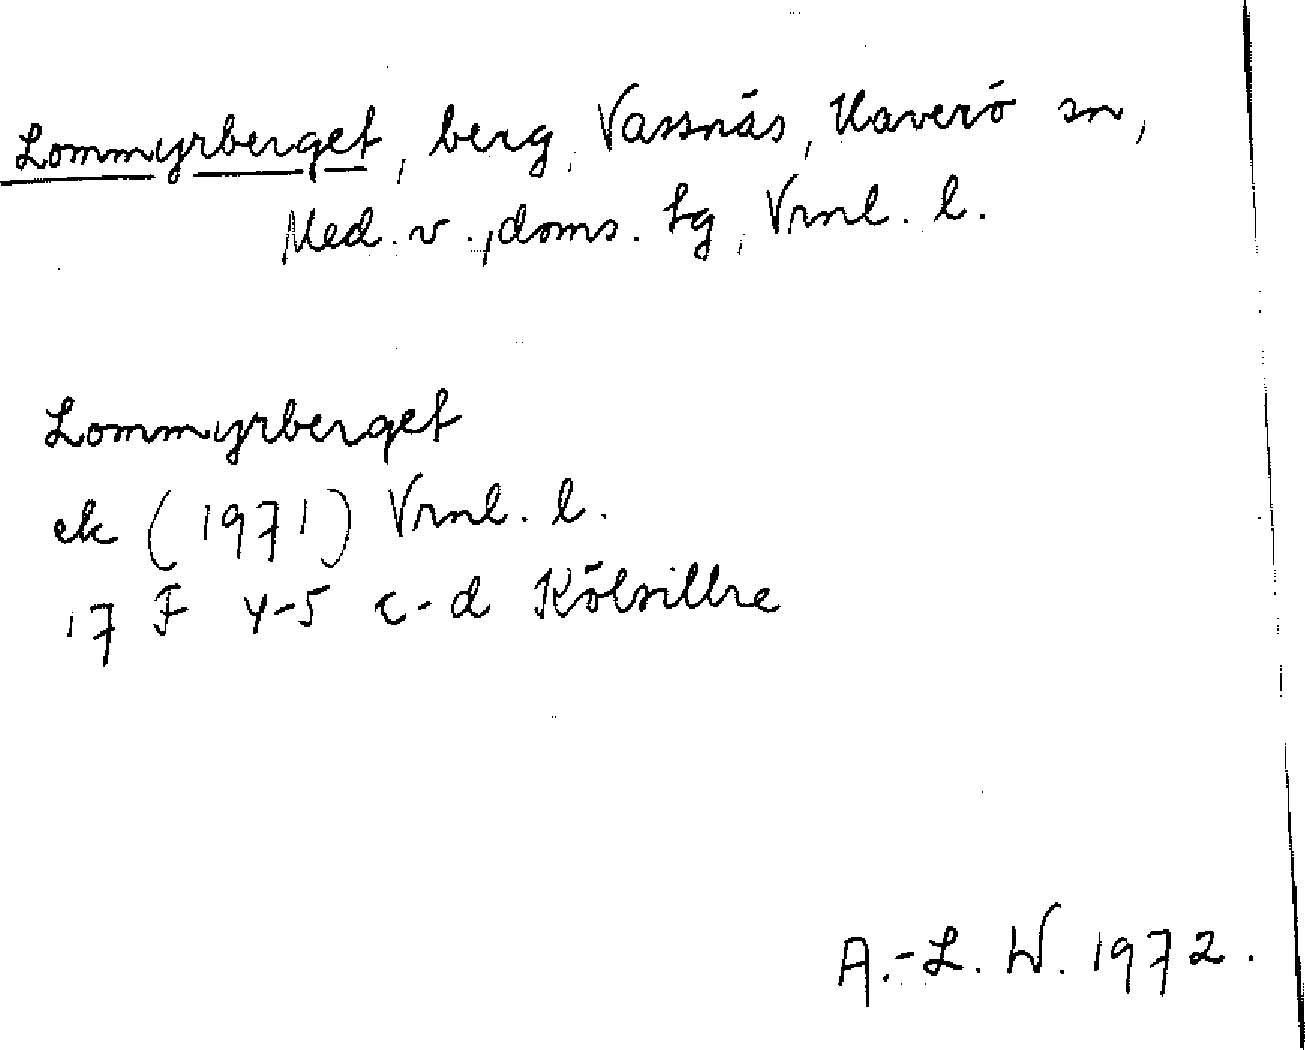 Lommyrberget, berg, Vassnäs, Haverö sn,
Med. v., doms. lg, Vrnl. l.
Lommyrberget
ek (1971) Vrnl. l.
17 F 4-5 c-d Kölsillre
A.-L. W. 1972.